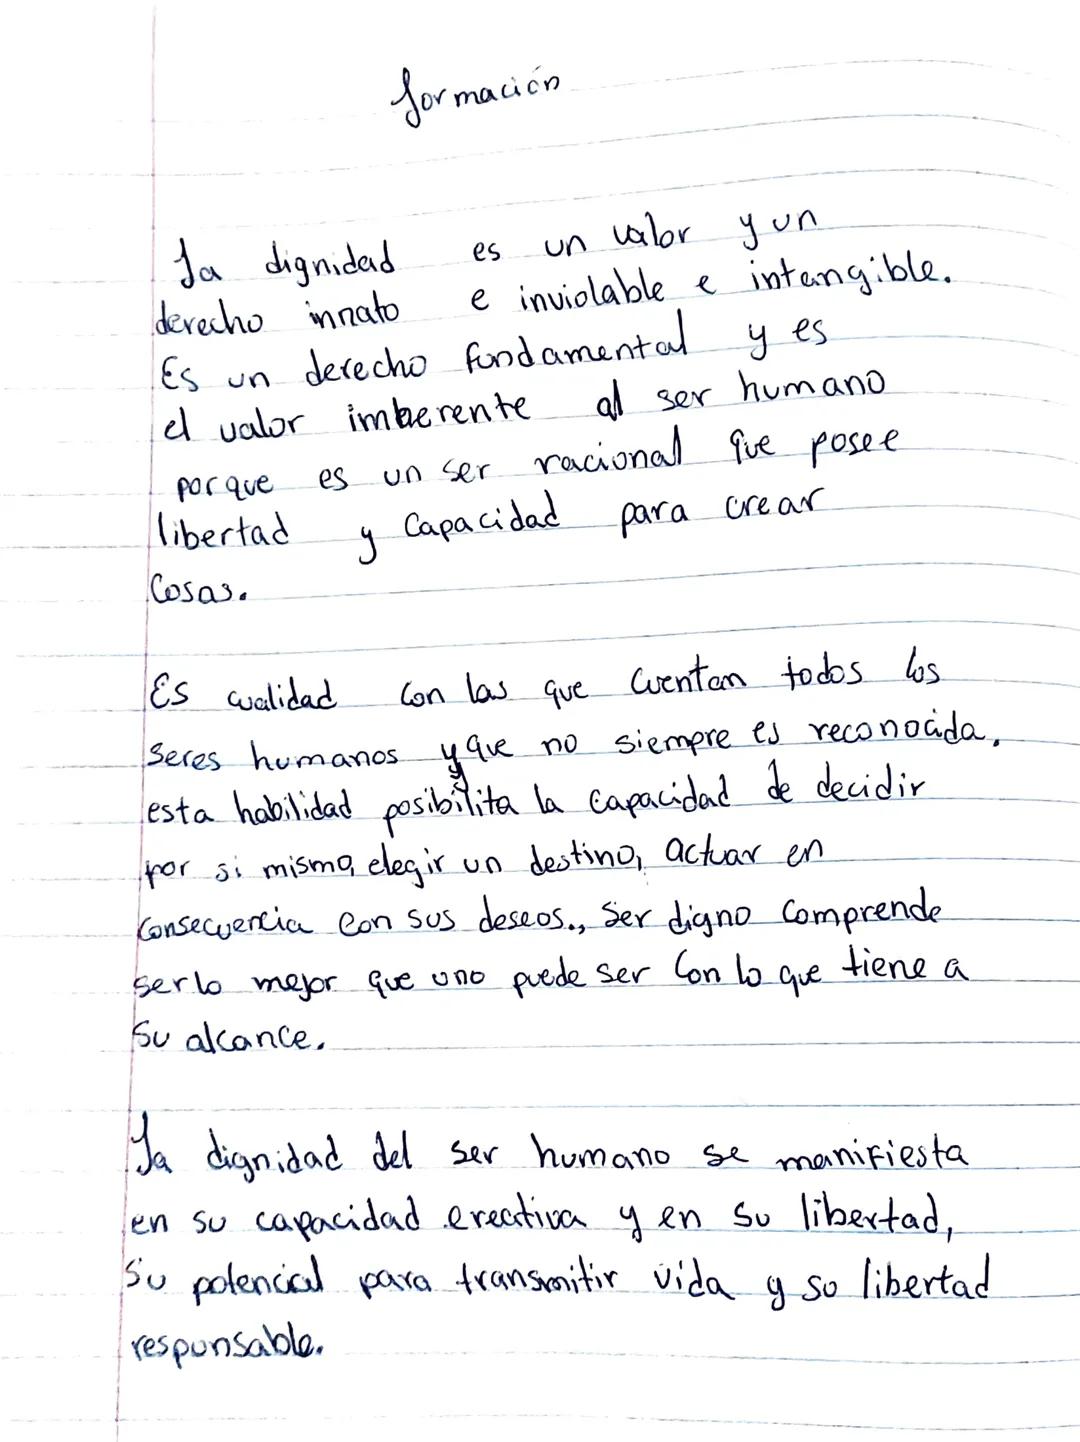 formación
La dignidad es un valor y un
derecho innato e inviolable e intangible.
Es un derecho fundamental y es
el valor imherente al ser humano
porque es un ser racional que posee
libertad y Capacidad para crear
Cosas.
Es cualidad con las que cuentan todos los
seres humanos y que no siempre es reconocida,
y
esta habilidad posibilita la capacidad de decidir
por si mismo, elegir un destino, actuar en
consecuencia con sus deseos., Ser digno comprende
ser lo mejor que uno puede ser con lo que tiene a
su alcance.
La dignidad del ser humano se manifiesta
en su capacidad creativa y en su libertad,
su potencial para transmitir vida y su libertad
responsable.